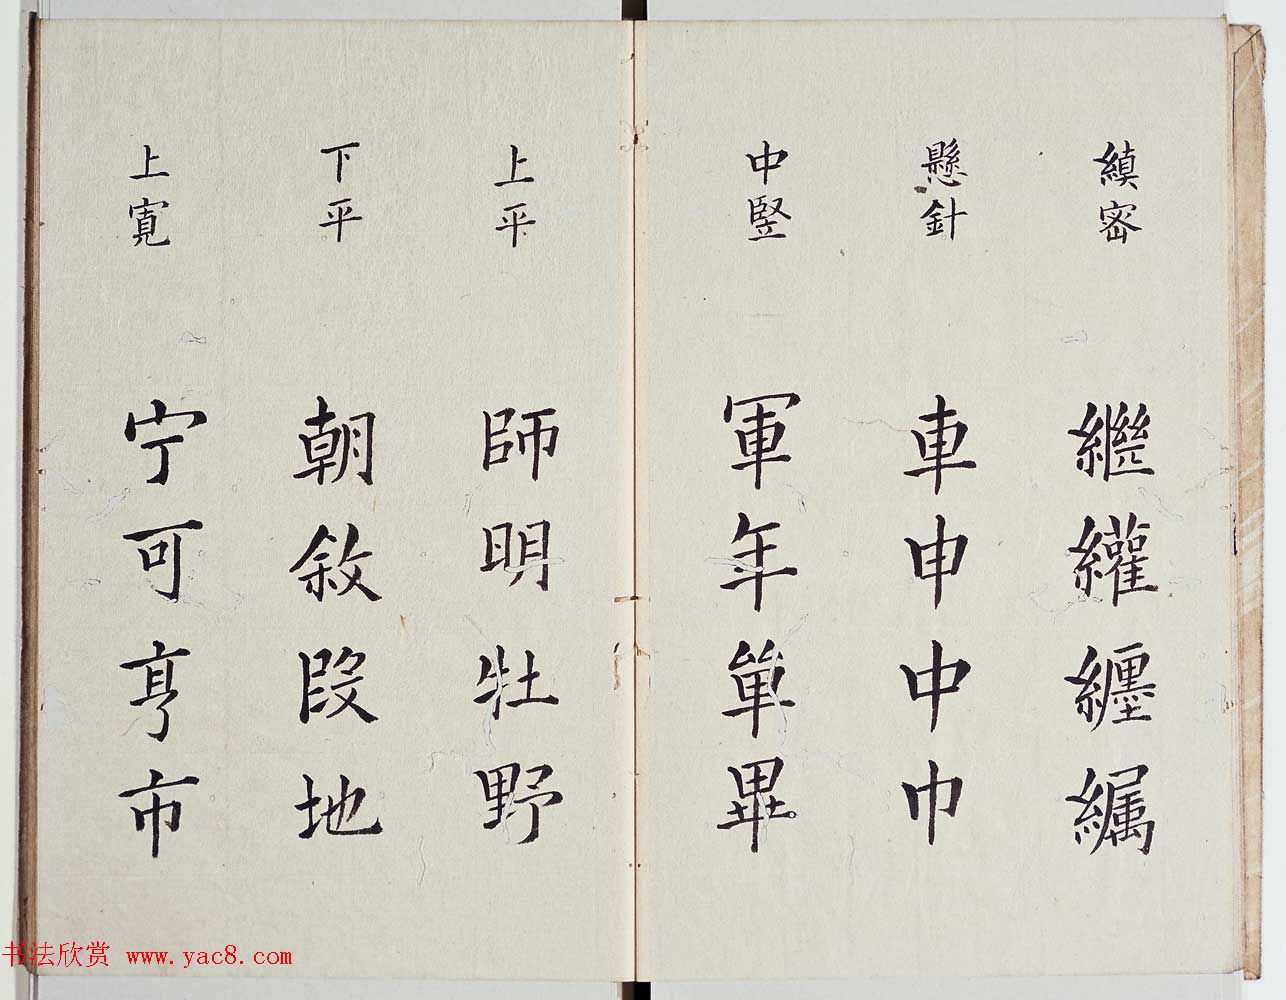 縝密
繼纙纏纊
懸針
車申中巾
中竪
軍年單畢
上平
師明牡野
下平
朝敘段地
上寬
宁可亨市
书法欣赏 www.yac8.com